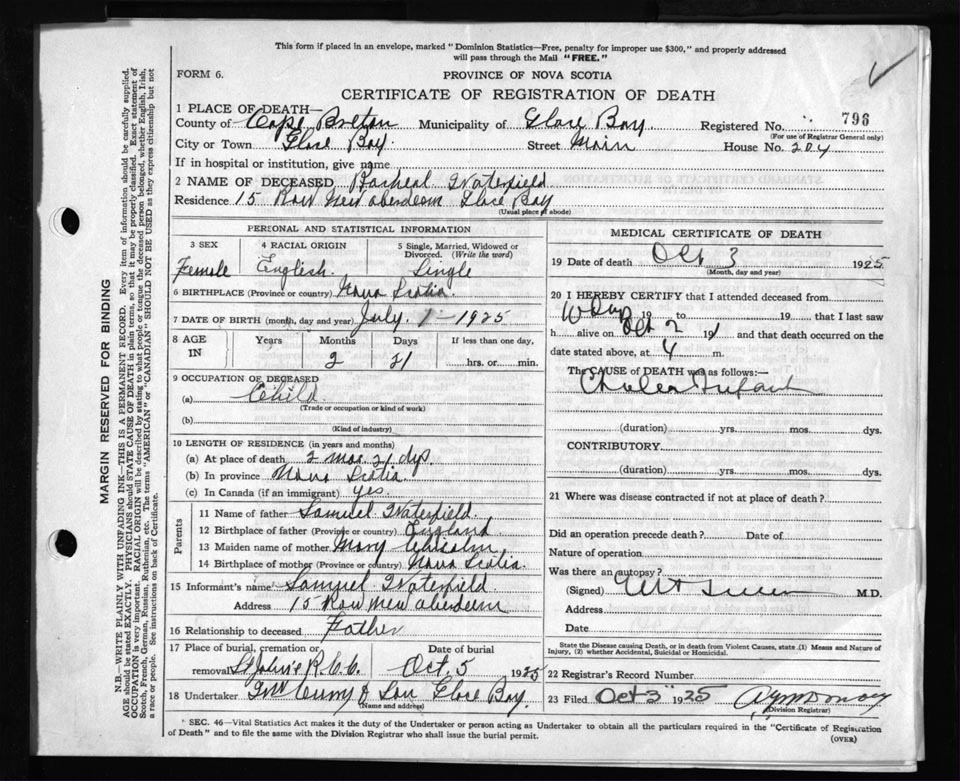 This form if placed in an envelope, marked "Dominion Statistics—Free, penalty for improper use $300," and properly addressed
will pass through the Mail "FREE."
FORM 6.
PROVINCE OF NOVA SCOTIA
CERTIFICATE OF REGISTRATION OF DEATH
1 PLACE OF DEATH—
County of Cape Breton Municipality of Glace Bay Registered No. 796
(For use of Registrar General only)
City or Town Glace Bay Street Main House No. 204
If in hospital or institution, give name
2 NAME OF DECEASED Racheal Waterfield
Residence 15 Row New aberdeen Glace Bay
(Usual place of abode)
PERSONAL AND STATISTICAL INFORMATION
3 SEX 4 RACIAL ORIGIN 5 Single, Married, Widowed or Divorced. (Write the word)
Female English. Single
6 BIRTHPLACE (Province or country) Nova Scotia.
7 DATE OF BIRTH (month, day and year) July. 1 - 1925
8 AGE IN Years Months Days If less than one day,
2 21 hrs. or min.
9 OCCUPATION OF DECEASED
(a) Child.
(Trade or occupation or kind of work)
(b)
(Kind of industry)
10 LENGTH OF RESIDENCE (in years and months)
(a) At place of death 2 mos. 21 dys.
(b) In province Nova Scotia
(c) In Canada (if an immigrant) yes.
Parents
11 Name of father Samuel Waterfield.
12 Birthplace of father (Province or country) England
13 Maiden name of mother Mary Chisolm
14 Birthplace of mother (Province or country) Nova Scotia.
15 Informant's name Samuel Waterfield
Address 15 Row New aberdeen
16 Relationship to deceased Father
17 Place of burial, cremation or removal Date of burial
St John's R.C.C. Oct. 5 1925
18 Undertaker Curry & Son Glace Bay.
(Name and address)
MEDICAL CERTIFICATE OF DEATH
19 Date of death Oct 3 1925
(Month, day and year)
20 I HEREBY CERTIFY that I attended deceased from
19 to 19 that I last saw
h alive on Oct 2 19 and that death occurred on the
date stated above, at 4 m.
The CAUSE of DEATH was as follows:—
Cholera Infant
(duration) yrs. mos. dys.
CONTRIBUTORY.
(duration) yrs. mos. dys.
21 Where was disease contracted if not at place of death?
Did an operation precede death? Date of
Nature of operation
Was there an autopsy?
(Signed) M.D.
Address
Date
State the Disease causing Death, or in death from Violent Causes, state (1) Means and Nature of
Injury, (2) whether Accidental, Suicidal or Homicidal.
22 Registrar's Record Number
23 Filed Oct 3 1925
(Division Registrar)
* SEC. 46—Vital Statistics Act makes it the duty of the Undertaker or person acting as Undertaker to obtain all the particulars required in the "Certificate of Registration
of Death" and to file the same with the Division Registrar who shall issue the burial permit.
(OVER)
MARGIN RESERVED FOR BINDING
N.B.—WRITE PLAINLY WITH UNFADING INK—THIS IS A PERMANENT RECORD. Every item of information should be carefully supplied.
AGE should be stated EXACTLY. PHYSICIANS should STATE CAUSE OF DEATH in plain terms, so that it may be properly classified. Exact statement of
OCCUPATION is very important. RACIAL ORIGIN will be described by stating to what people or tongue the deceased person belonged, whether English, Irish,
Scotch, French, German, Russian, Ruthenian, etc. The terms "AMERICAN" or "CANADIAN" SHOULD NOT BE USED as they express citizenship but not
a race or people. See instructions on back of Certificate.